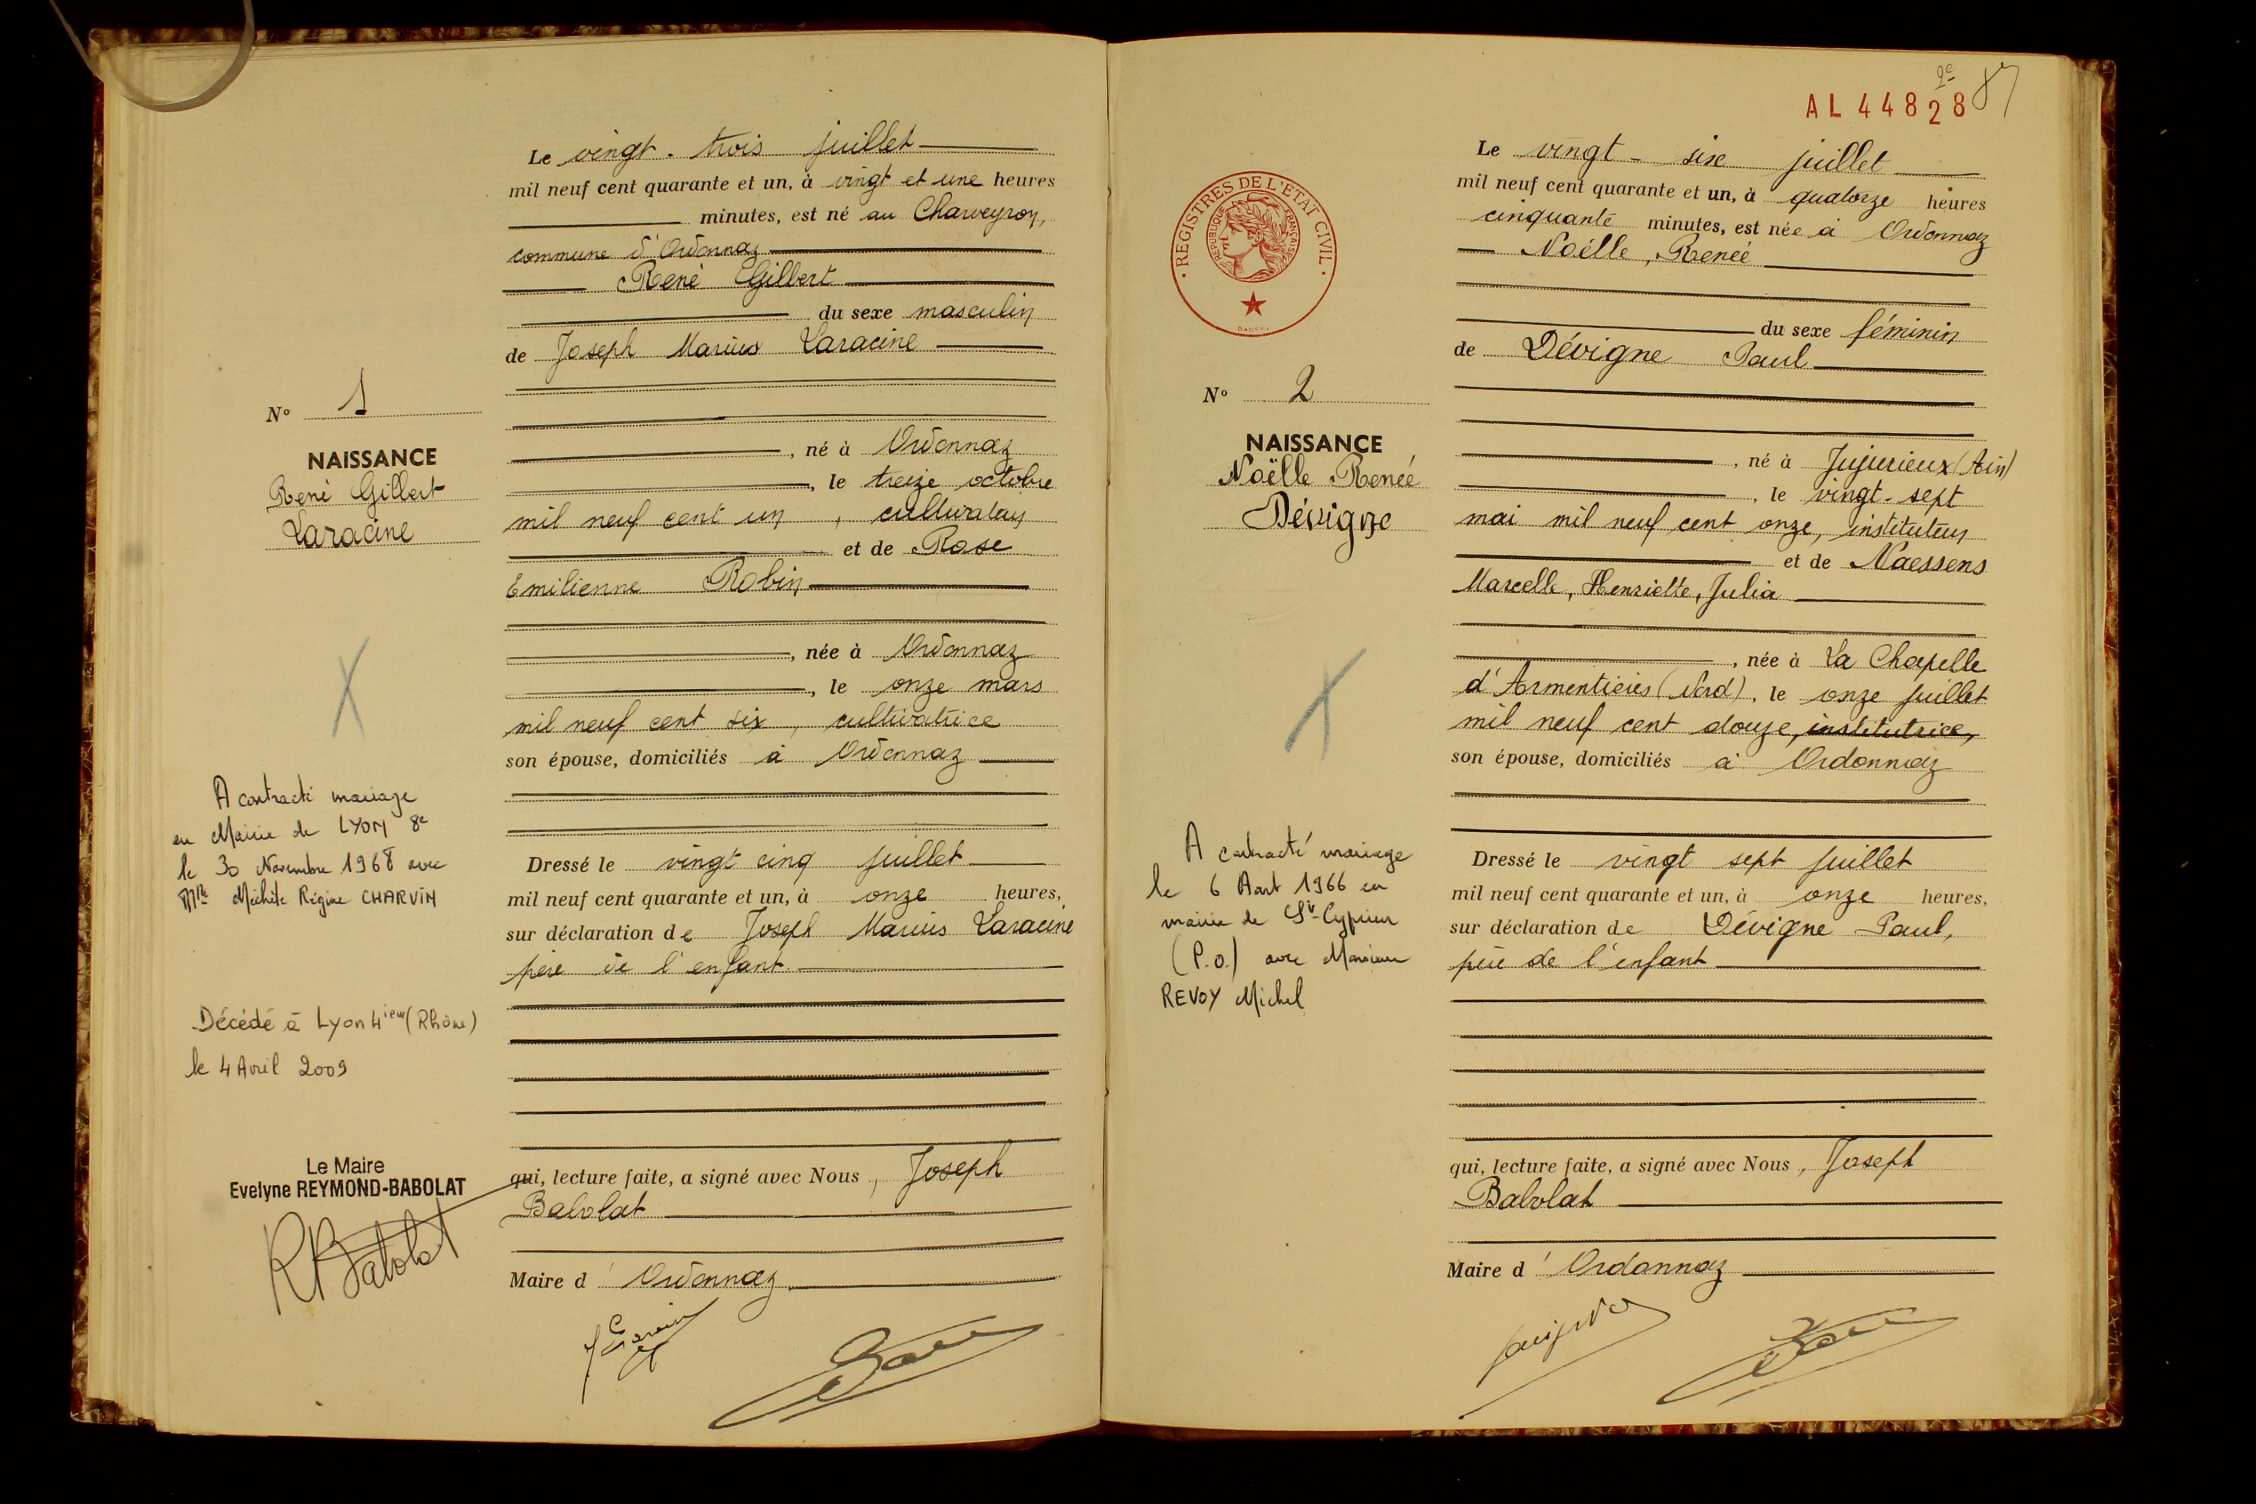 Le vingt-trois juillet
mil neuf cent quarante et un, à vingt et une heures
minutes, est né au Charveyron,
commune d'Ordonnaz
René Gilbert
du sexe masculin
de Joseph Marius Laracine
, né à Ordonnaz
, le treize octobre
mil neuf cent un, cultivateur
et de Rose
Emilienne Robin
, née à Ordonnaz
, le onze mars
mil neuf cent six, cultivatrice
son épouse, domiciliés à Ordonnaz
Dressé le vingt cinq juillet
mil neuf cent quarante et un, à onze heures,
sur déclaration de Joseph Marius Laracine
père de l'enfant
qui, lecture faite, a signé avec Nous, Joseph
Babolat
Maire d'Ordonnaz
No 1
NAISSANCE
René Gilbert
Laracine
A contracté mariage
en Mairie de LYON 8e
le 30 Novembre 1968 avec
Mlle Régine CHARVIN
Décédé à Lyon 4ième (Rhône)
le 4 Avril 2009
Le Maire
Evelyne REYMOND-BABOLAT
RBabolat
2e
AL 44828
87
REGISTRES DE L'ETAT CIVIL
REPUBLIQUE FRANÇAISE
Le vingt-six juillet
mil neuf cent quarante et un, à quatorze heures
cinquante minutes, est née à Ordonnaz
Noëlle, Renée
du sexe féminin
de Dévigne Paul
, né à Jujurieux (Ain)
, le vingt-sept
mai mil neuf cent onze, instituteur
et de Naessens
Marcelle, Henriette, Julia
, née à La Chapelle
d'Armentières (Nord), le onze juillet
mil neuf cent douze, institutrice,
son épouse, domiciliés à Ordonnaz
Dressé le vingt sept juillet
mil neuf cent quarante et un, à onze heures,
sur déclaration de Dévigne Paul,
père de l'enfant
qui, lecture faite, a signé avec Nous, Joseph
Babolat
Maire d'Ordonnaz
No 2
NAISSANCE
Noëlle Renée
Dévigne
A contracté mariage
le 6 Aout 1966 en
mairie de St-Cyprien
(P.O.) avec Monsieur
REVOY Michel